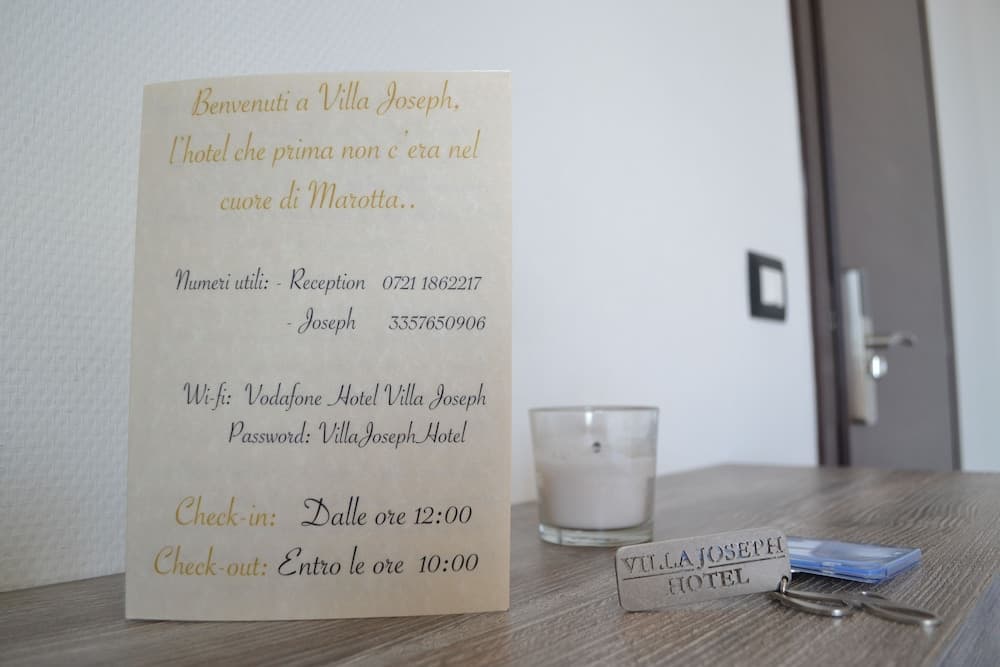 Benvenuti a Villa Joseph,
l'hotel che prima non c'era nel
cuore di Marotta..
Numeri utili: - Reception 0721 1862217
- Joseph 3357650906
Wi-fi: Vodafone Hotel Villa Joseph
Password: VillaJosephHotel
Check-in: Dalle ore 12:00
Check-out: Entro le ore 10:00
VILLA JOSEPH
HOTEL